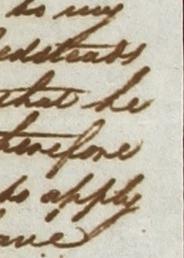 to my
bedsteads
that he
therefore
to apply
have